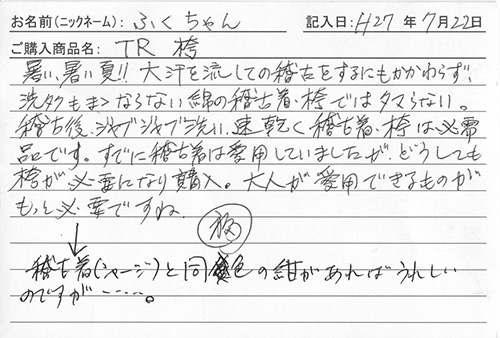 お名前(ニックネーム): ふくちゃん 記入日: H27年7月22日
ご購入商品名: TR 袴
暑い、暑い夏!! 大汗を流しての稽古をするにもかかわらず、
洗タクもまゝならない綿の稽古着・袴ではタマらない。
稽古後、ジャブジャブ洗い、速乾く稽古着・袴は必需
品です。すでに稽古着は愛用していましたが、どうしても
袴が必要になり購入。大人が愛用できるものが
もっと必要ですね。
稽古着(ジャージ)と同色の紺があればうれしい
のですが----。